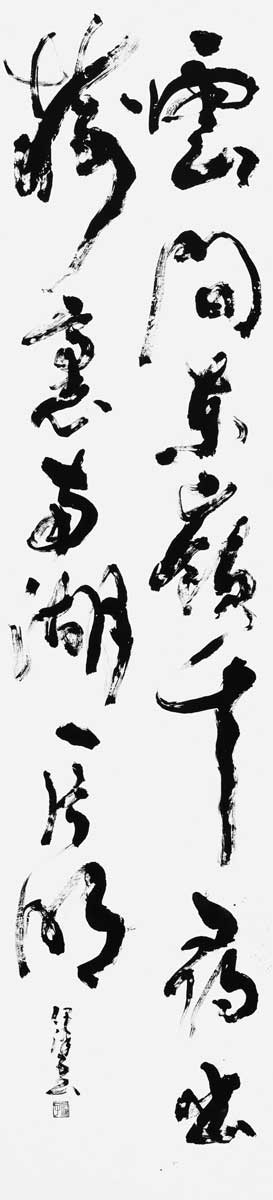 雲間東嶺千尋出
樹裏南湖一片明